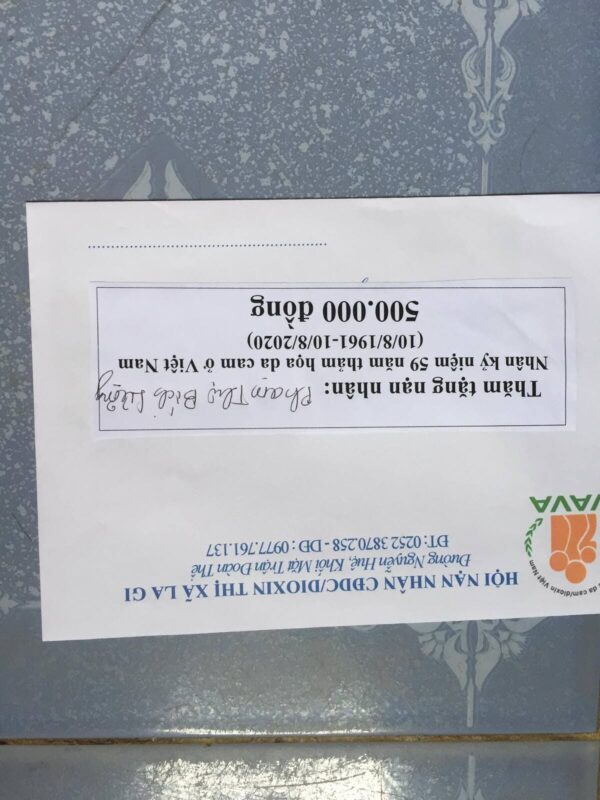 HỘI NẠN NHÂN CĐDC/DIOXIN THỊ XÃ LA GI
Đường Nguyễn Huệ, Khối Mặt Trận Đoàn Thể
ĐT: 0252 3870.258 - DĐ : 0977.761.137
da cam/dioxin Việt Nam
VAVA
Thăm tặng nạn nhân: Phạm Thị Bích Lượng
Nhân kỷ niệm 59 năm thảm họa da cam ở Việt Nam
(10/8/1961-10/8/2020)
500.000 đồng